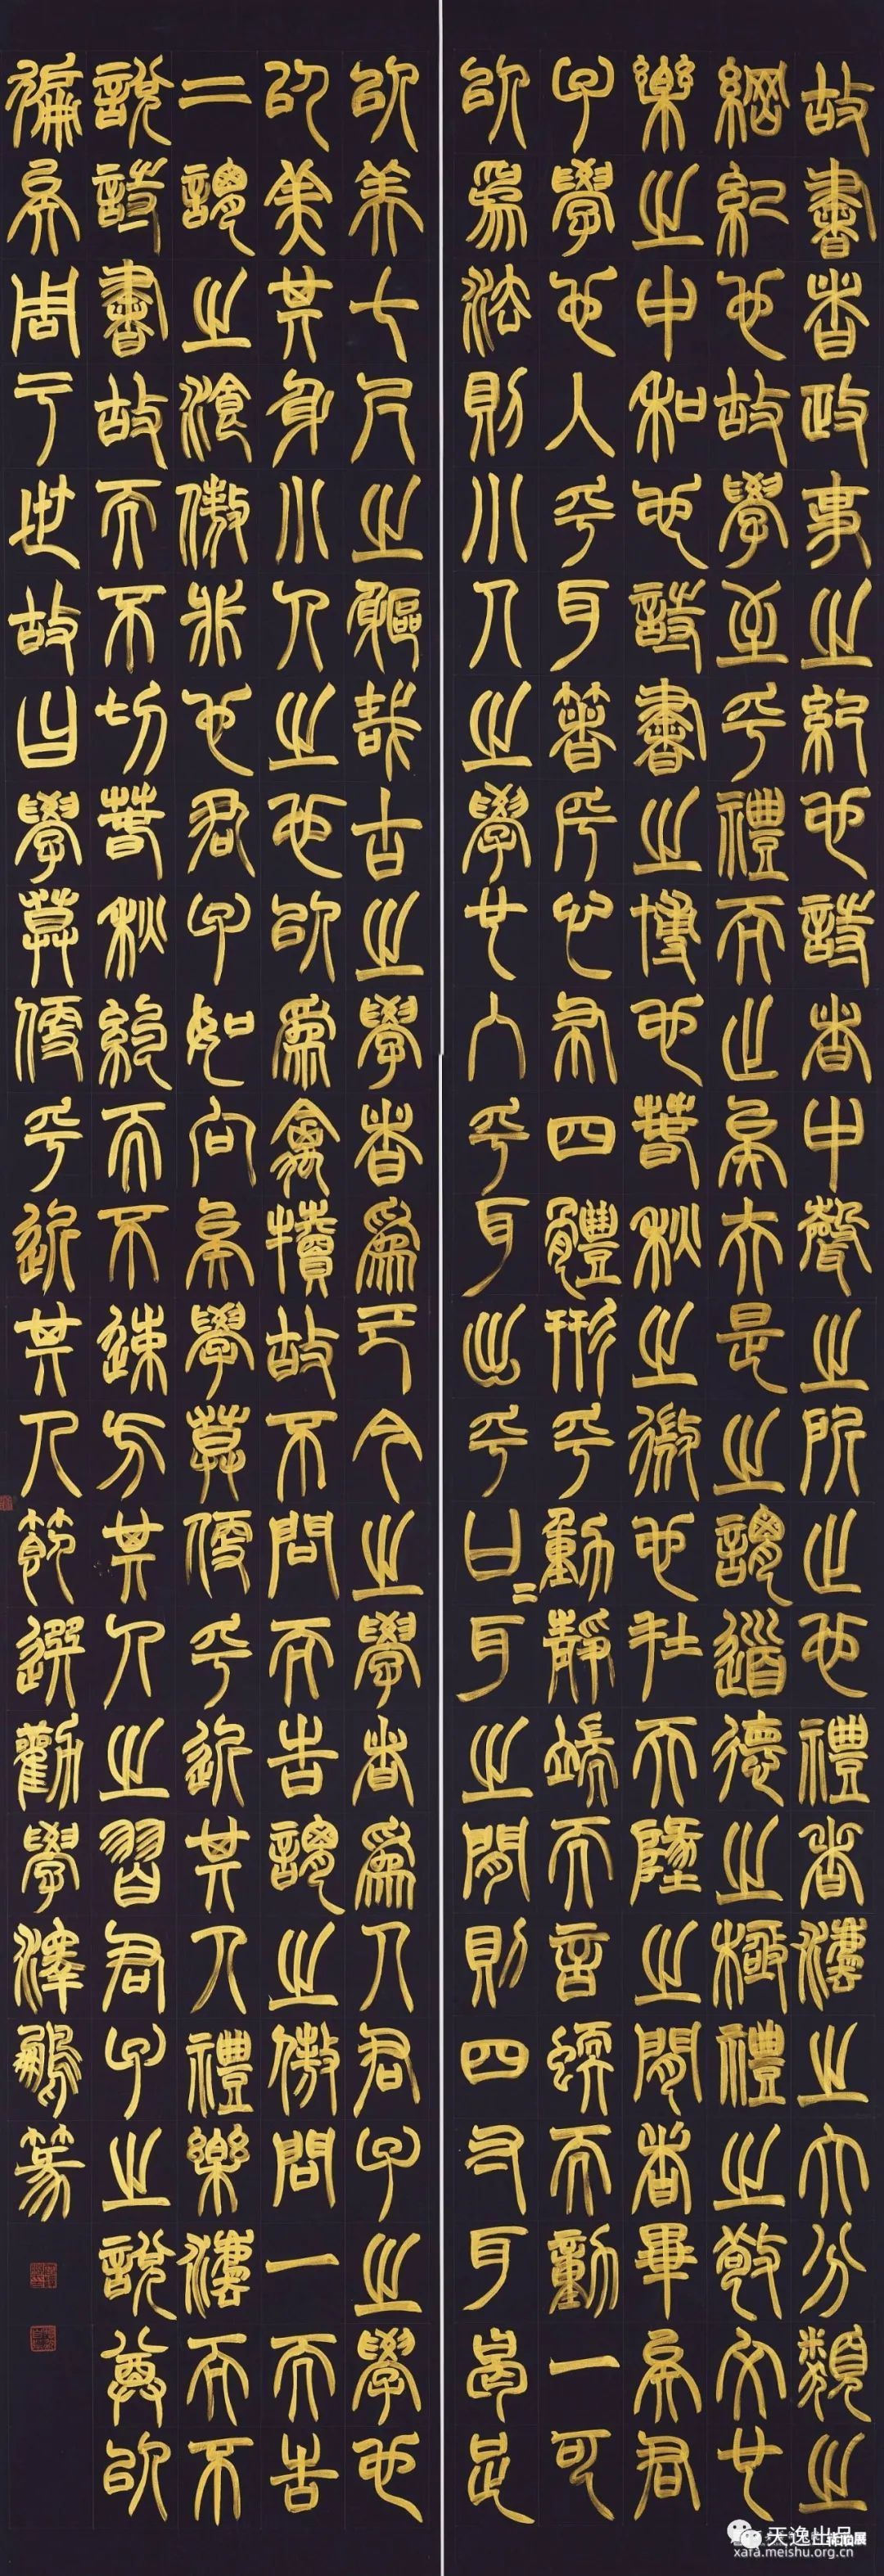 故書者政事之紀也詩者中聲之所止也禮者灋之大分類之
綱紀也故學至乎禮而止矣夫是之謂道德之極禮之敬文也
樂之中和也詩書之博也春秋之微也在天地之間者畢矣君
子學也入乎耳箸乎心布四體形乎動靜端而言蝡而動一可
以為法則小人之學也入乎耳出乎口二耳之間則四寸耳曷足
以美七尺之軀哉古之學者為己今之學者為人君子之學也
以美其身小人之也以為禽犢故不問而告謂之傲問一而告
二謂之傲非也君子如向矣學莫便乎近其人禮樂灋而不
說詩書故而不切春秋約而不速方其人之習君子之說尊以
徧矣周于世故曰學莫便乎近其人節選勸學澤鵬篆
天逸出品
xafa.meishu.org.cn